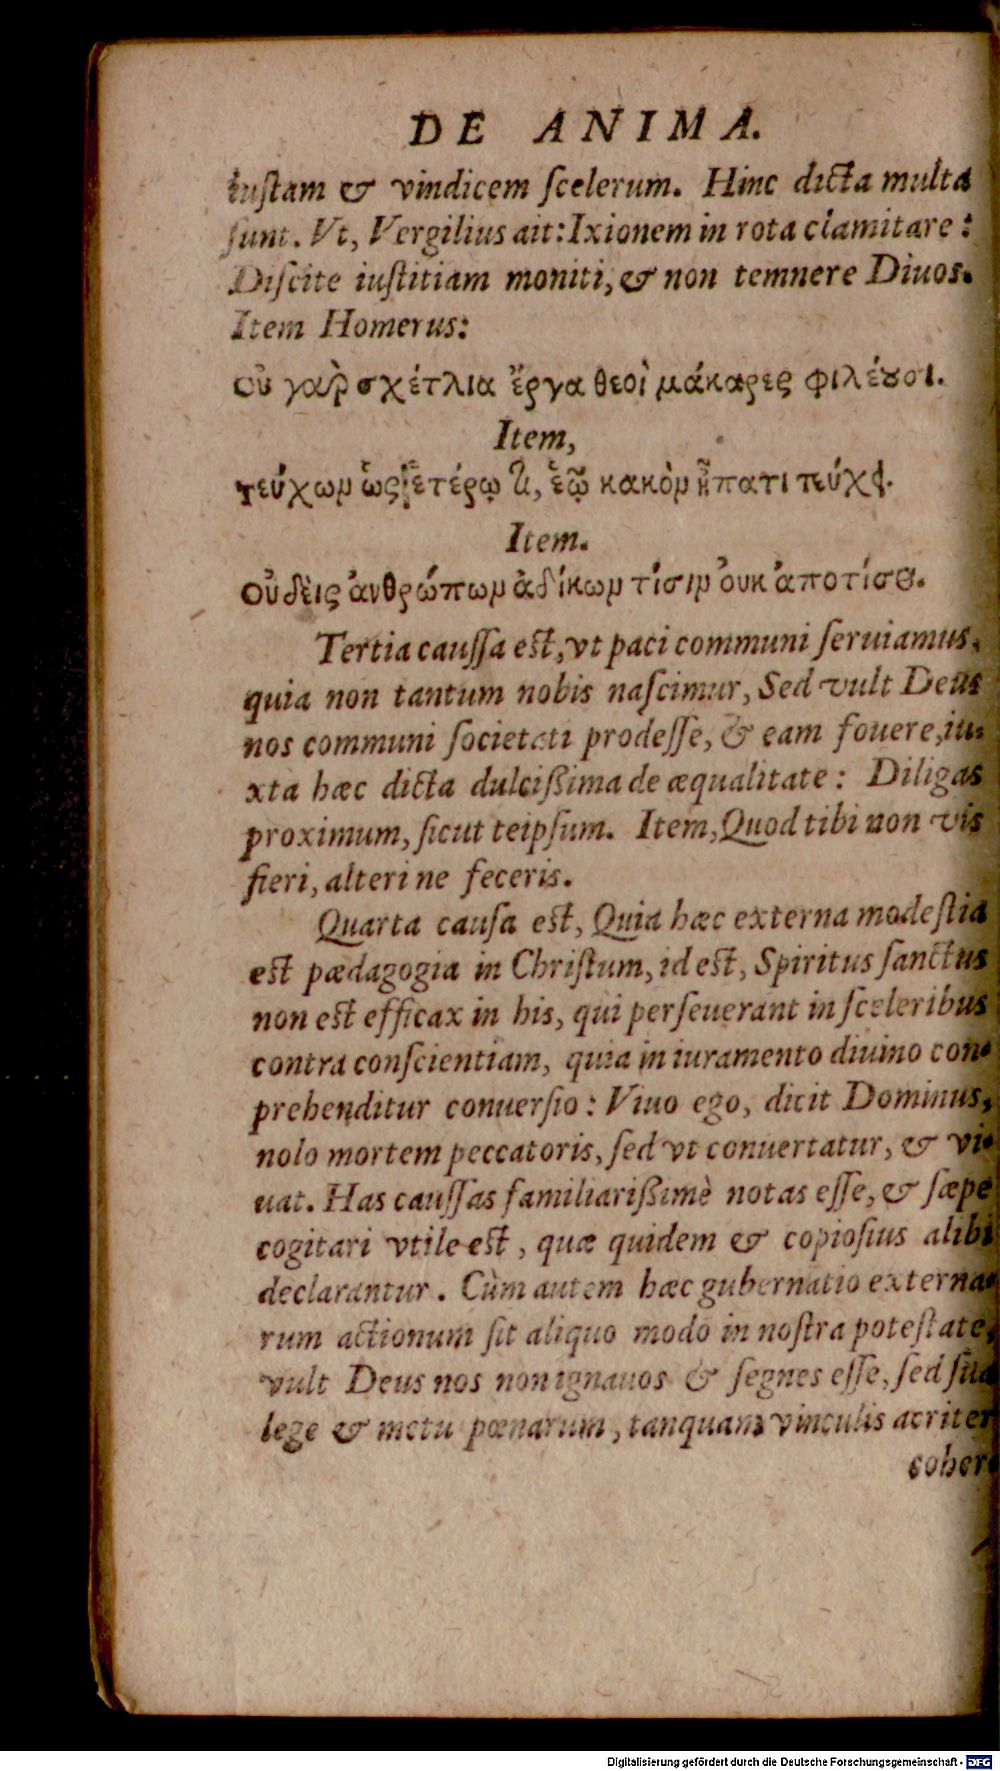 DE ANIMA.
iuſtam & vindicem ſcelerum. Hinc dicta multa
ſunt. Vt, Vergilius ait: Ixionem in rota clamitare:
Diſcite iuſtitiam moniti, & non temnere Diuos.
Item Homerus:
Οὐ γαὶρ σχέτλια ἔργα θεοὶ μάκαρες φιλέουσι.
Item,
τεύχων ὡς ἑτέρῳ τὶς, ἑῷ κακὸν ἥπατι τεύχει.
Item.
οὐδεὶς ἀνθρώπων ἀδίκων τίσιν ὀυκ ἀποτίσει.
Tertia cauſſa eſt, vt paci communi ſeruiamus,
quia non tantum nobis naſcimur, Sed vult Deus
nos communi ſocietati prodeſſe, & eam fouere, iu-
xta hæc dicta dulciſſima de æqualitate: Diligas
proximum, ſicut teipſum. Item, Quod tibi non vis
fieri, alteri ne feceris.
Quarta cauſa eſt, Quia hæc externa modeſtia
eſt pædagogia in Chriſtum, id eſt, Spiritus ſanctus
non eſt efficax in his, qui perſeuerant in ſceleribus
contra conſcientiam, quia in iuramento diuino con-
prehenditur conuerſio: Viuo ego, dicit Dominus,
nolo mortem peccatoris, ſed vt conuertatur, & vi-
uat. Has cauſſas familiariſſimè notas eſſe, & ſæpe
cogitari vtile eſt, quæ quidem & copioſius alibi
declarantur. Cùm autem hæc gubernatio externa-
rum actionum ſit aliquo modo in noſtra poteſtate,
vult Deus nos non ignauos & ſegnes eſſe, ſed ſua
lege & metu pœnarum, tanquam vinculis acriter
coher-
Digitalisierung gefördert durch die Deutsche Forschungsgemeinschaft - DFG